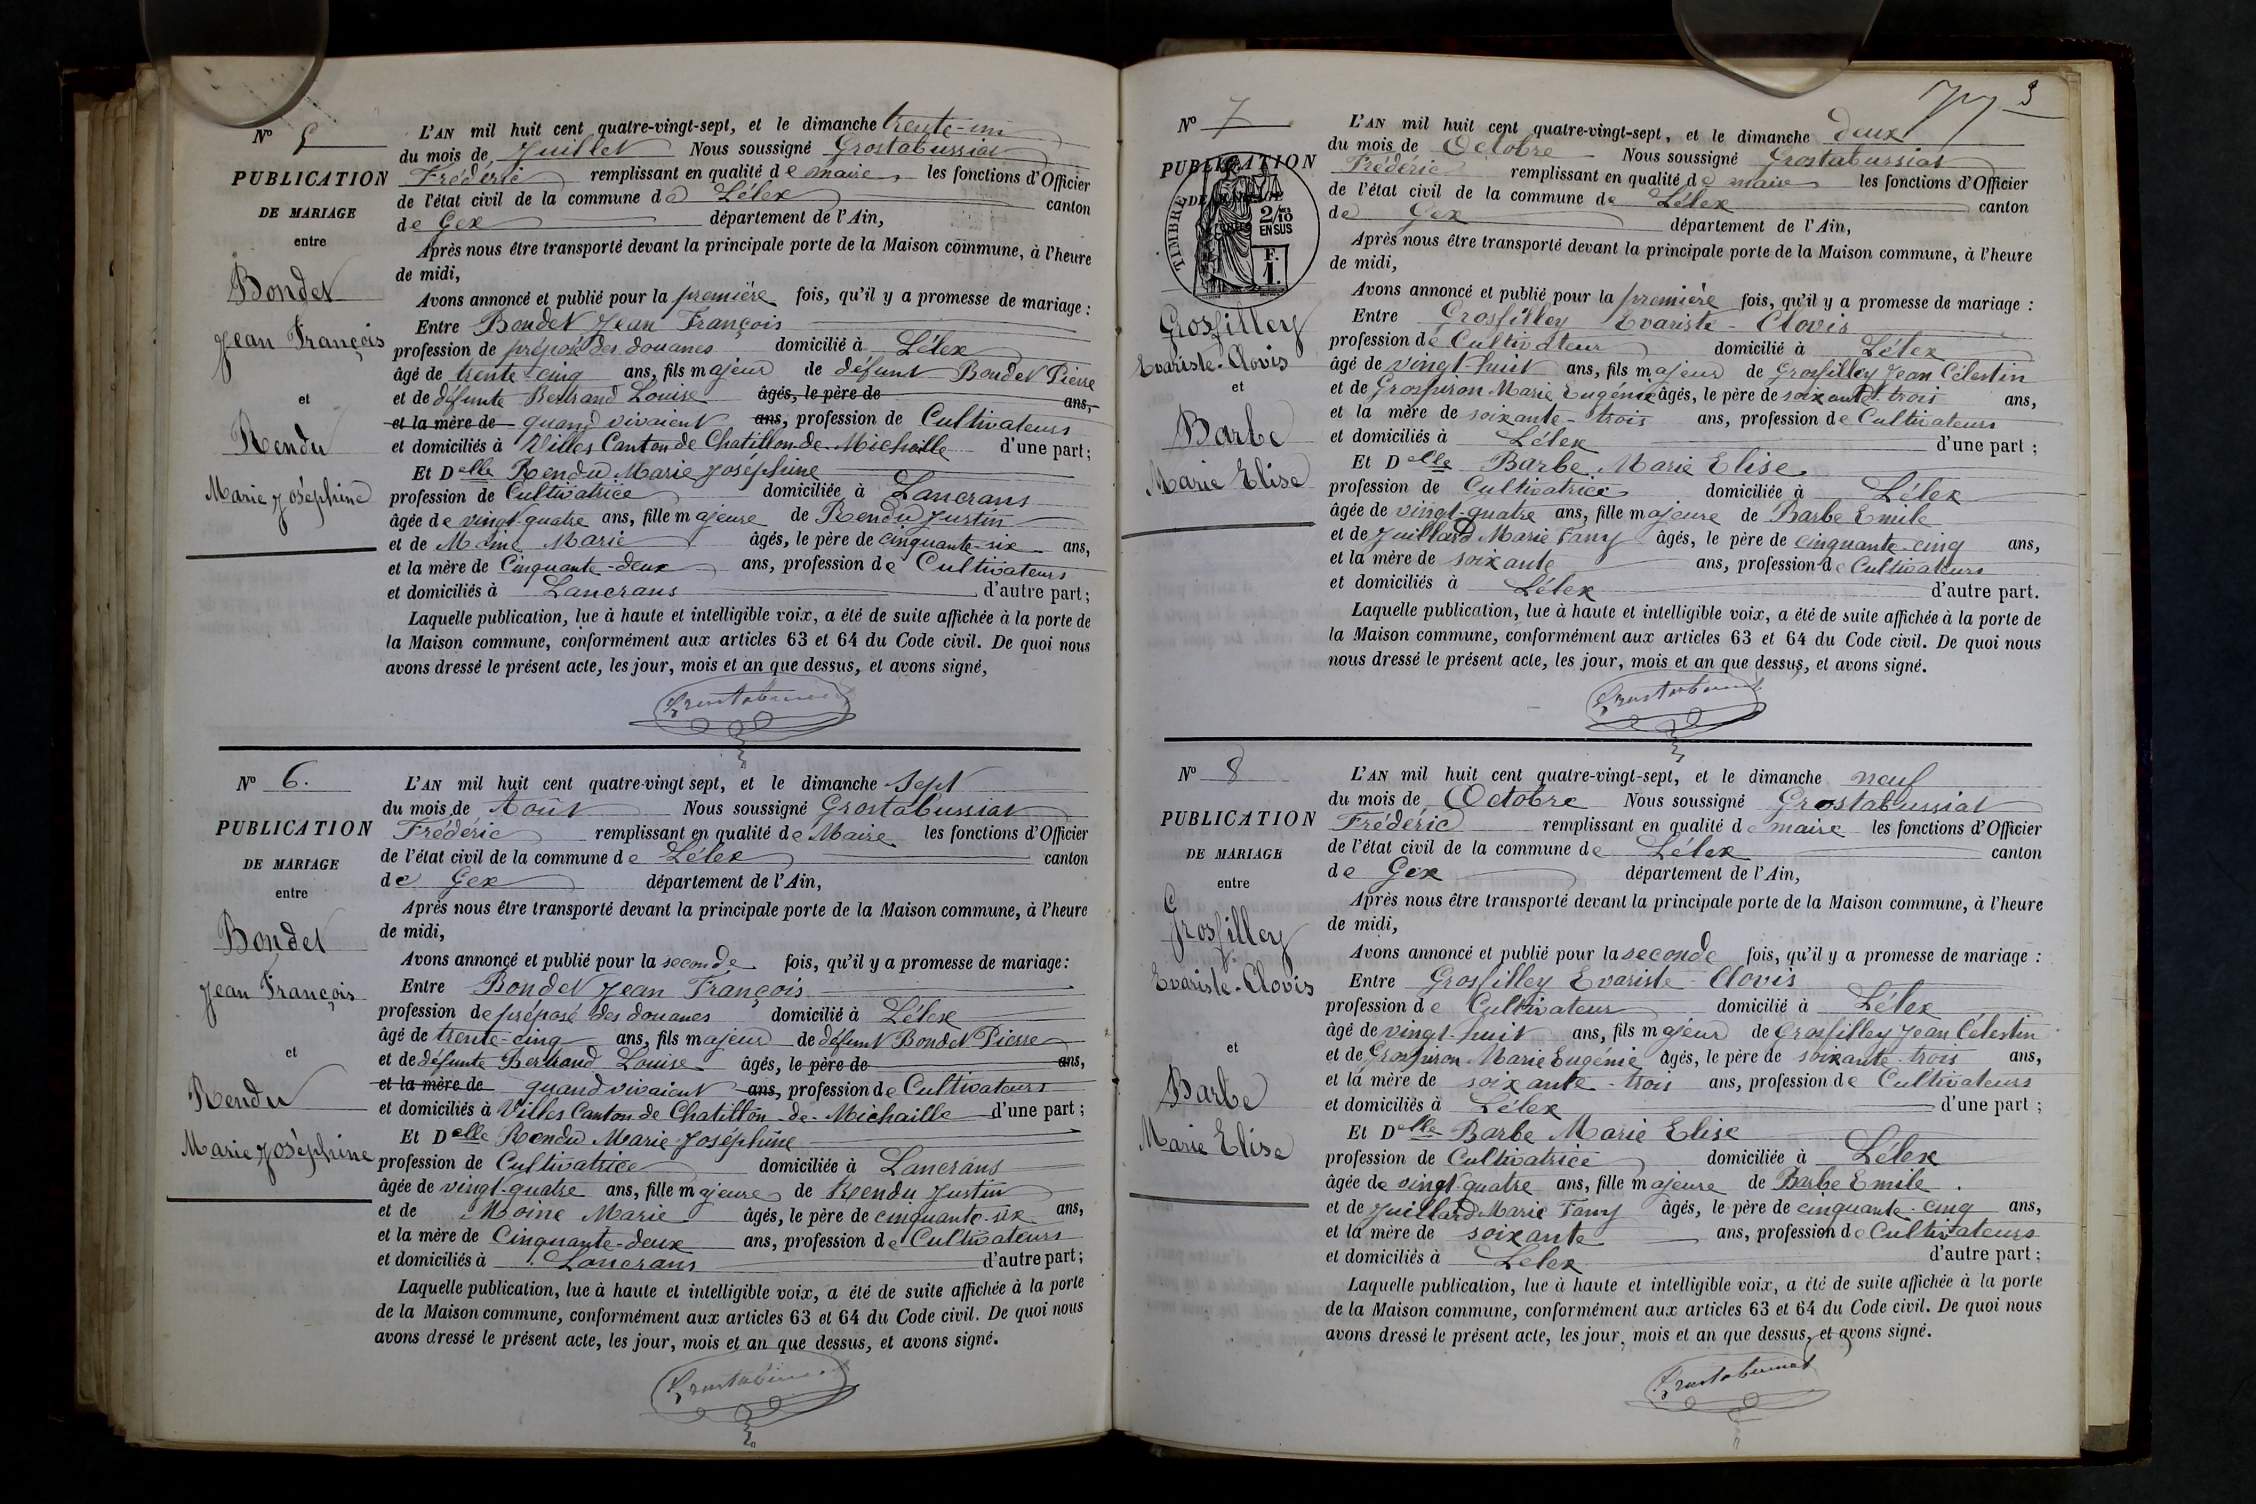 N° 5
PUBLICATION
DE MARIAGE
entre
Bondet
Jean François
et
Rendu
Marie Joséphine
L'AN mil huit cent quatre-vingt-sept, et le dimanche trente-un
du mois de Juillet Nous soussigné Grostabussiat
Frédéric remplissant en qualité de maire les fonctions d'Officier
de l'état civil de la commune de Lélex canton
de Gex département de l'Ain,
Après nous être transporté devant la principale porte de la Maison commune, à l'heure
de midi,
Avons annoncé et publié pour la première fois, qu'il y a promesse de mariage :
Entre Bondet Jean François
profession de préposé des douanes domicilié à Lélex
âgé de trente-cinq ans, fils majeur de défunt Bondet Pierre
et de défunte Bertrand Louise âgés, le père de ans,
et la mère de quand vivaient ans, profession de Cultivateurs
et domiciliés à Villes Canton de Chatillon-de-Michaille d'une part;
Et Delle Rendu Marie Joséphine
profession de Cultivatrice domiciliée à Lancrans
âgée de vingt-quatre ans, fille majeure de Rendu Justin
et de Moine Marie âgés, le père de cinquante-six ans,
et la mère de Cinquante-deux ans, profession de Cultivateurs
et domiciliés à Lancrans d'autre part;
Laquelle publication, lue à haute et intelligible voix, a été de suite affichée à la porte de
la Maison commune, conformément aux articles 63 et 64 du Code civil. De quoi nous
avons dressé le présent acte, les jour, mois et an que dessus, et avons signé,
Grostabussiat
N° 6.
PUBLICATION
DE MARIAGE
entre
Bondet
Jean François
et
Rendu
Marie Joséphine
L'AN mil huit cent quatre-vingt sept, et le dimanche sept
du mois de Août Nous soussigné Grostabussiat
Frédéric remplissant en qualité de Maire les fonctions d'Officier
de l'état civil de la commune de Lélex canton
de Gex département de l'Ain,
Après nous être transporté devant la principale porte de la Maison commune, à l'heure
de midi,
Avons annoncé et publié pour la seconde fois, qu'il y a promesse de mariage:
Entre Bondet Jean François
profession de préposé des douanes domicilié à Lélex
âgé de trente-cinq ans, fils majeur de défunt Bondet Pierre
et de défunte Bertrand Louise âgés, le père de ans,
et la mère de quand vivaient ans, profession de Cultivateurs
et domiciliés à Villes Canton de Chatillon-de-Michaille d'une part;
Et Delle Rendu Marie Joséphine
profession de Cultivatrice domiciliée à Lancrans
âgée de vingt-quatre ans, fille majeure de Rendu Justin
et de Moine Marie âgés, le père de cinquante-six ans,
et la mère de Cinquante-deux ans, profession de Cultivateurs
et domiciliés à Lancrans d'autre part;
Laquelle publication, lue à haute et intelligible voix, a été de suite affichée à la porte
de la Maison commune, conformément aux articles 63 et 64 du Code civil. De quoi nous
avons dressé le présent acte, les jour, mois et an que dessus, et avons signé.
Grostabussiat
3
N° 7
PUBLICATION
DE MARIAGE
TIMBRE
2/10
EN SUS
F.
1.
Grosfilley
Evariste-Clovis
et
Barbe
Marie Elise
L'AN mil huit cent quatre-vingt-sept, et le dimanche deux
du mois de Octobre Nous soussigné Grostabussiat
Frédéric remplissant en qualité de maire les fonctions d'Officier
de l'état civil de la commune de Lélex canton
de Gex département de l'Ain,
Après nous être transporté devant la principale porte de la Maison commune, à l'heure
de midi,
Avons annoncé et publié pour la première fois, qu'il y a promesse de mariage :
Entre Grosfilley Evariste-Clovis
profession de Cultivateur domicilié à Lélex
âgé de vingt-huit ans, fils majeur de Grosfilley Jean Célestin
et de Grospiron Marie Eugénie âgés, le père de soixante-trois ans,
et la mère de soixante-trois ans, profession de Cultivateurs
et domiciliés à Lélex d'une part ;
Et Delle Barbe Marie Elise
profession de Cultivatrice domiciliée à Lélex
âgée de vingt-quatre ans, fille majeure de Barbe Emile
et de Juillard Marie Fany âgés, le père de cinquante-cinq ans,
et la mère de soixante ans, profession de Cultivateurs
et domiciliés à Lélex d'autre part.
Laquelle publication, lue à haute et intelligible voix, a été de suite affichée à la porte de
la Maison commune, conformément aux articles 63 et 64 du Code civil. De quoi nous
nous dressé le présent acte, les jour, mois et an que dessus, et avons signé.
Grostabussiat
N° 8
PUBLICATION
DE MARIAGE
entre
Grosfilley
Evariste-Clovis
et
Barbe
Marie Elise
L'AN mil huit cent quatre-vingt-sept, et le dimanche neuf
du mois de Octobre Nous soussigné Grostabussiat
Frédéric remplissant en qualité de maire les fonctions d'Officier
de l'état civil de la commune de Lélex canton
de Gex département de l'Ain,
Après nous être transporté devant la principale porte de la Maison commune, à l'heure
de midi,
Avons annoncé et publié pour la seconde fois, qu'il y a promesse de mariage :
Entre Grosfilley Evariste-Clovis
profession de Cultivateur domicilié à Lélex
âgé de vingt-huit ans, fils majeur de Grosfilley Jean Célestin
et de Grospiron Marie Eugénie âgés, le père de soixante-trois ans,
et la mère de soixante-trois ans, profession de Cultivateurs
et domiciliés à Lélex d'une part ;
Et Delle Barbe Marie Elise
profession de Cultivatrice domiciliée à Lélex
âgée de vingt-quatre ans, fille majeure de Barbe Emile.
et de Juillard Marie Fany âgés, le père de cinquante-cinq ans,
et la mère de soixante ans, profession de Cultivateurs
et domiciliés à Lélex d'autre part ;
Laquelle publication, lue à haute et intelligible voix, a été de suite affichée à la porte
de la Maison commune, conformément aux articles 63 et 64 du Code civil. De quoi nous
avons dressé le présent acte, les jour, mois et an que dessus, et avons signé.
Grostabussiat